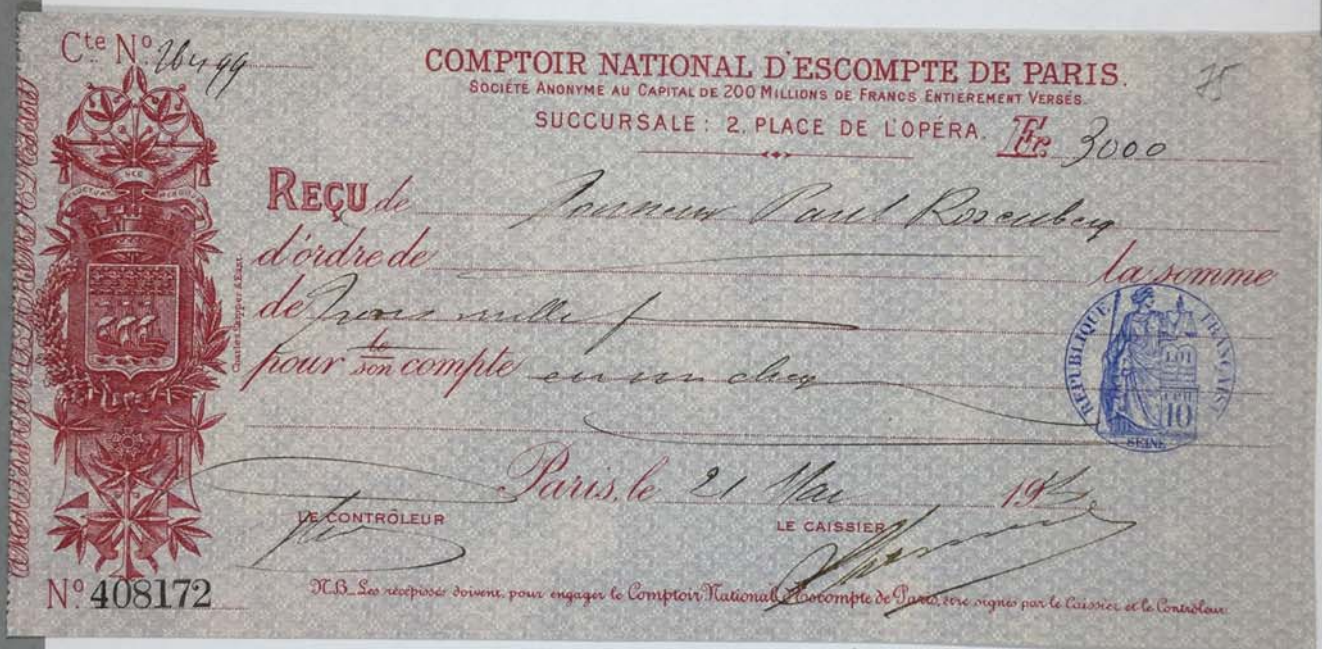 Cte No 26499
COMPTOIR NATIONAL D'ESCOMPTE DE PARIS.
75
SOCIÉTÉ ANONYME AU CAPITAL DE 200 MILLIONS DE FRANCS ENTIEREMENT VERSÉS.
SUCCURSALE: 2, PLACE DE L'OPÉRA. Fr. 3000
REÇU de Monsieur Paul Rosenberg
d'ordre de la somme
de Trois mille f
pour son compte en un cheq
RÉPUBLIQUE FRANÇAISE
LOI
10
SEINE
Paris, le 21 Mai 19
LE CONTRÔLEUR LE CAISSIER
No 408172
N.B. Les récépissés doivent, pour engager le Comptoir National d'Escompte de Paris, être signés par le Caissier et le Contrôleur.